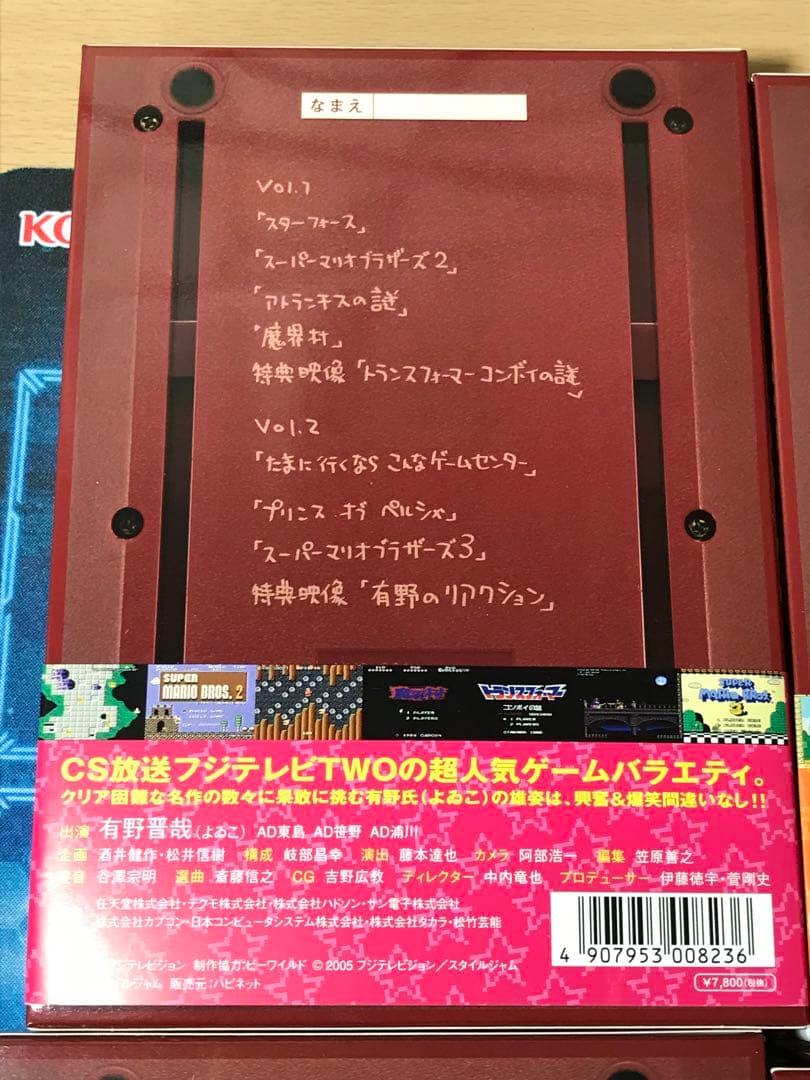 KO
なまえ
Vol.1
「スターフォース」
「スーパーマリオブラザーズ2」
「アトランチスの謎」
「魔界村」
特典映像「トランスフォーマー コンボイの謎」
Vol.2
「たまに行くなら こんなゲームセンター」
「プリンス オブ ペルシャ」
「スーパーマリオブラザーズ3」
特典映像「有野のリアクション」
SUPER
MARIO BROS. 2
魔界村
1 PLAYER
2 PLAYERS
トランスフォーマー
コンボイの謎
SUPER
MARIO BROS
3
CS放送フジテレビTWOの超人気ゲームバラエティ。
クリア困難な名作の数々に果敢に挑む有野氏(よゐこ)の雄姿は、興奮&爆笑間違いなし!!
出演 有野晋哉(よゐこ) AD東島 AD笹野 AD浦川
企画 酒井健作・松井信樹 構成 岐部昌幸 演出 藤本達也 カメラ 阿部浩一 編集 笠原善之
音 谷澤宗明 選曲 斎藤信之 CG 吉野広教 ディレクター 中内竜也 プロデューサー 伊藤徳宇・菅剛史
任天堂株式会社・テクモ株式会社・株式会社ハドソン・サン電子株式会社
株式会社カプコン・日本コンピュータシステム株式会社・株式会社タカラ・松竹芸能
フジテレビジョン 制作協力:ビーワイルド © 2005 フジテレビジョン/スタイルジャム
イルジャム 販売元:ハピネット
4 907953 008236
¥7,800(税抜)